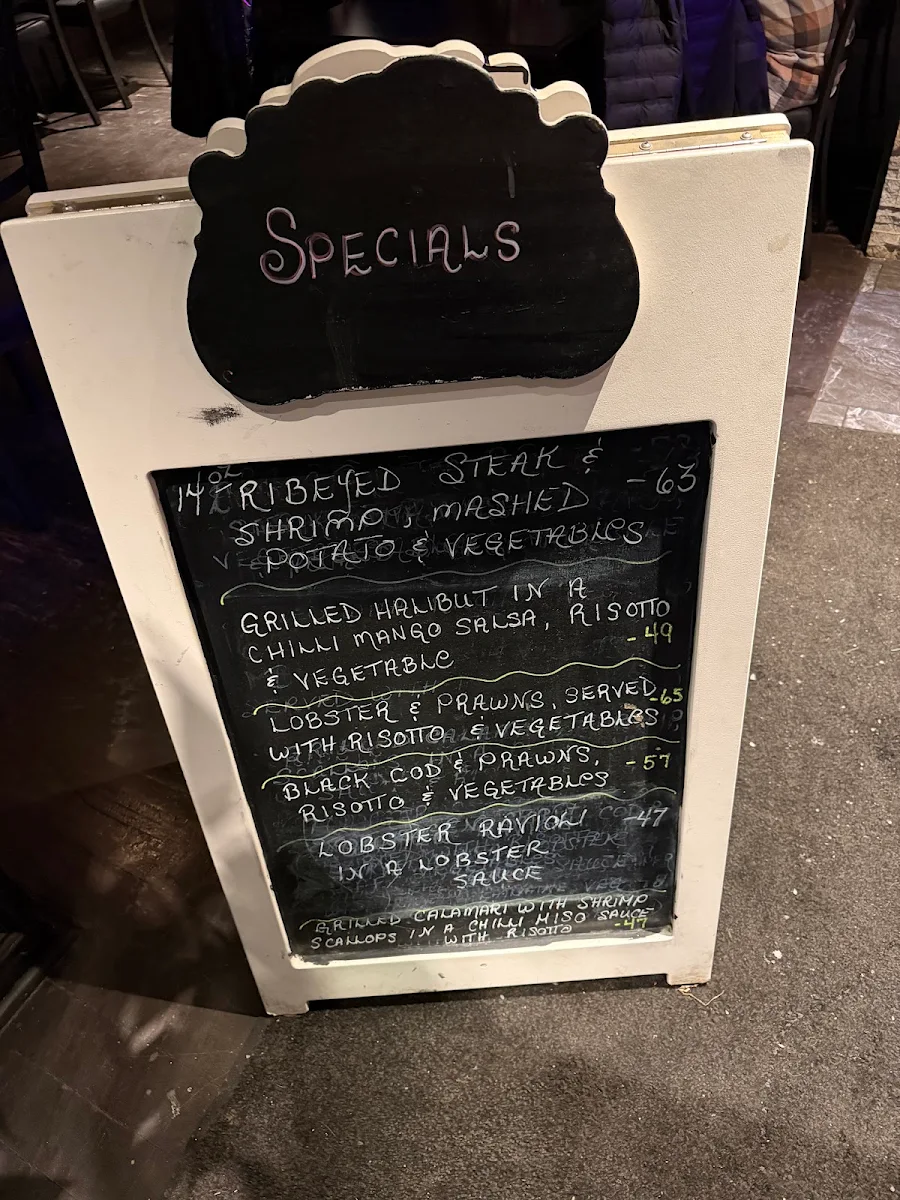 SPECIALS
14 oz RIBEYED STEAK & - 63
SHRIMP, MASHED
POTATO & VEGETABLES
GRILLED HALIBUT IN A
CHILLI MANGO SALSA, RISOTTO
& VEGETABLE - 49
LOBSTER & PRAWNS, SERVED - 65
WITH RISOTTO & VEGETABLES
BLACK COD & PRAWNS, - 57
RISOTTO & VEGETABLES
LOBSTER RAVIOLI - 47
IN A LOBSTER
SAUCE
GRILLED CALAMARI WITH SHRIMP
SCALLOPS IN A CHILLI MISO SAUCE
WITH RISOTTO - 47